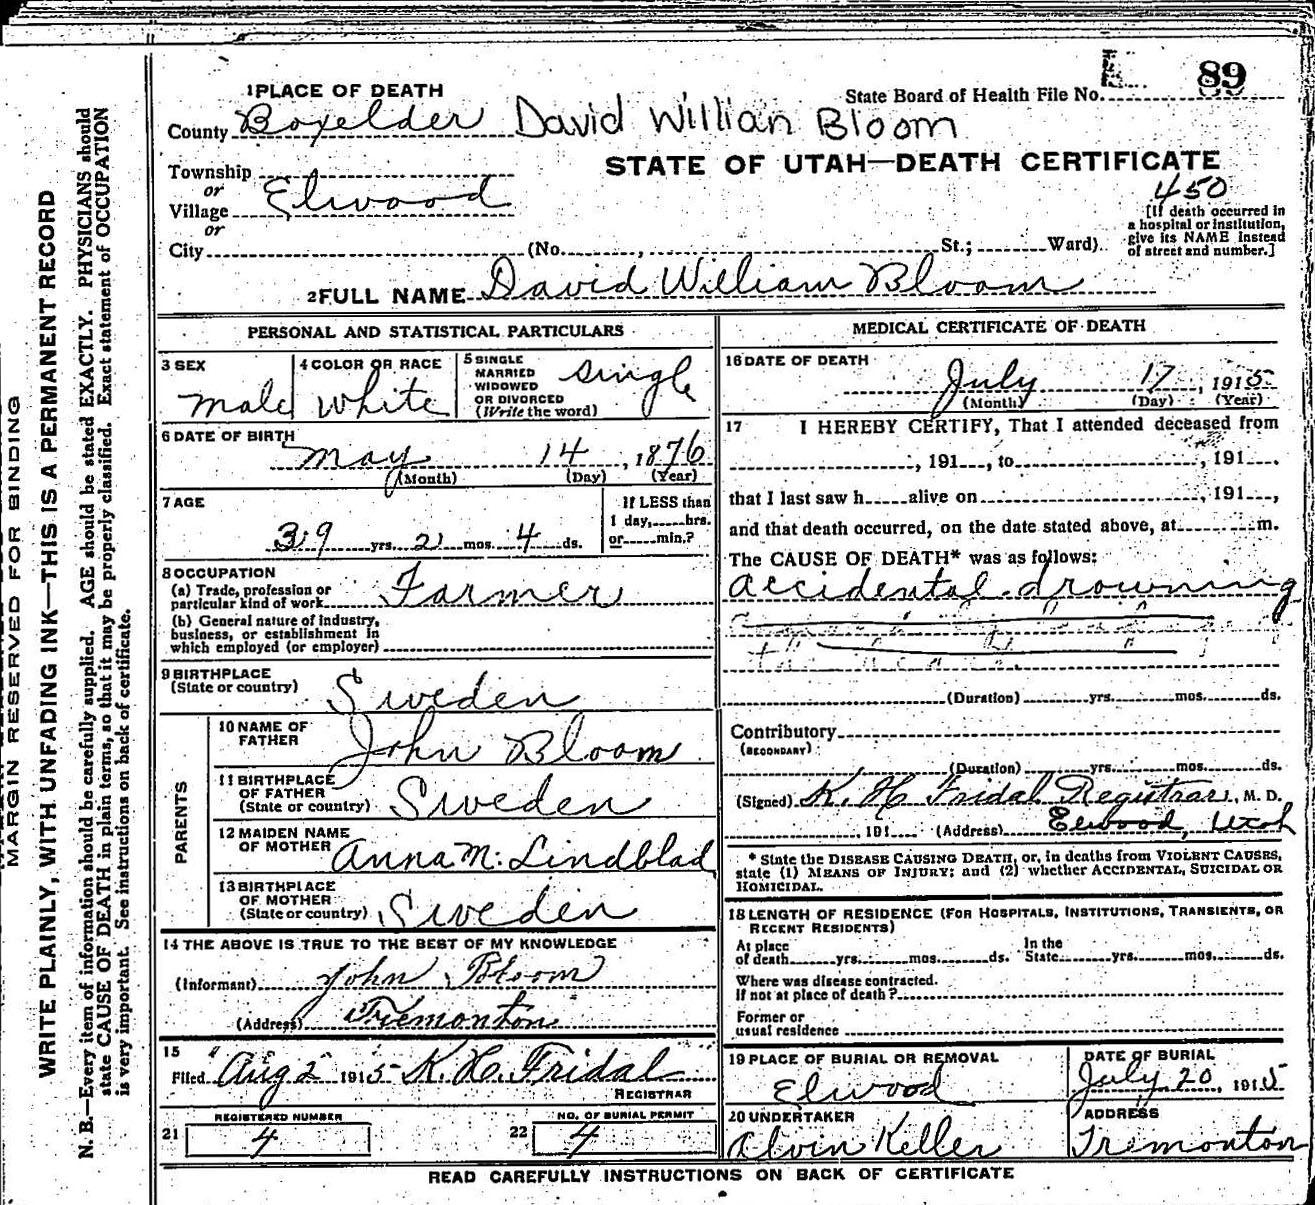 MARGIN RESERVED FOR BINDING
WRITE PLAINLY, WITH UNFADING INK—THIS IS A PERMANENT RECORD
N. B.—Every item of information should be carefully supplied. AGE should be stated EXACTLY. PHYSICIANS should
state CAUSE OF DEATH in plain terms, so that it may be properly classified. Exact statement of OCCUPATION
is very important. See instructions on back of certificate.
89
1 PLACE OF DEATH
State Board of Health File No.
County Boxelder David Willian Bloom
STATE OF UTAH—DEATH CERTIFICATE
450
Township
or
Village Elwood
or
City (No. , St.; Ward)
[If death occurred in
a hospital or institution,
give its NAME instead
of street and number.]
2 FULL NAME David William Bloom
PERSONAL AND STATISTICAL PARTICULARS
3 SEX
male
4 COLOR OR RACE
White
5 SINGLE
MARRIED
WIDOWED
OR DIVORCED
(Write the word)
single
6 DATE OF BIRTH
May 14, 1876
(Month) (Day) (Year)
7 AGE
39 yrs. 2 mos. 4 ds.
If LESS than
1 day, hrs.
or min.?
8 OCCUPATION
(a) Trade, profession or
particular kind of work Farmer
(b) General nature of industry,
business, or establishment in
which employed (or employer)
9 BIRTHPLACE
(State or country) Sweden
PARENTS
10 NAME OF
FATHER John Bloom
11 BIRTHPLACE
OF FATHER
(State or country) Sweden
12 MAIDEN NAME
OF MOTHER Anna M. Lindblad
13 BIRTHPLACE
OF MOTHER
(State or country) Sweden
14 THE ABOVE IS TRUE TO THE BEST OF MY KNOWLEDGE
(Informant) John Bloom
(Address) Tremonton
15
Filed Aug 2 1915 K. H. Fridal
REGISTRAR
REGISTERED NUMBER
21 4
NO. OF BURIAL PERMIT
22 4
MEDICAL CERTIFICATE OF DEATH
16 DATE OF DEATH
July 17, 1915
(Month) (Day) (Year)
17 I HEREBY CERTIFY, That I attended deceased from
, 191 , to , 191 .
that I last saw h alive on , 191 ,
and that death occurred, on the date stated above, at m.
The CAUSE OF DEATH* was as follows:
accidental drowning
(Duration) yrs. mos. ds.
Contributory
(SECONDARY)
(Duration) yrs. mos. ds.
(Signed) K. H Fridal Registrar, M. D.
, 191 (Address) Elwood, Utah
* State the DISEASE CAUSING DEATH, or, in deaths from VIOLENT CAUSES,
state (1) MEANS OF INJURY; and (2) whether ACCIDENTAL, SUICIDAL OR
HOMICIDAL.
18 LENGTH OF RESIDENCE (FOR HOSPITALS, INSTITUTIONS, TRANSIENTS, OR
RECENT RESIDENTS)
At place
of death yrs. mos. ds.
In the
State yrs. mos. ds.
Where was disease contracted.
If not at place of death?
Former or
usual residence
19 PLACE OF BURIAL OR REMOVAL
Elwood
DATE OF BURIAL
July 20, 1915
20 UNDERTAKER
Alvin Keller
ADDRESS
Tremonton
READ CAREFULLY INSTRUCTIONS ON BACK OF CERTIFICATE